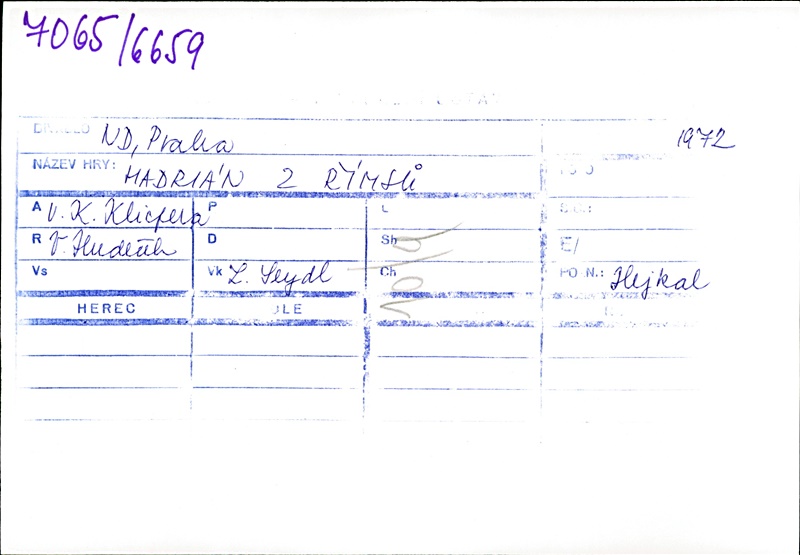 7065/6659
DIVADLO ND, Praha 1972
NÁZEV HRY: HADRIÁN Z ŘÍMSŮ
A V. K. Klicpera P L
R V. Hudeček D Sh E/
Vs Vk Z. Seydl Ch POZN.: Hejkal
HEREC